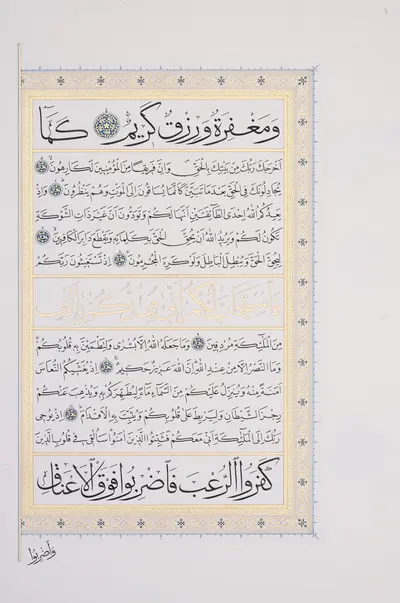 وَمَغْفِرَةٌ وَرِزْقٌ كَرِيمٌ كَمَا
اَخْرَجَكَ رَبُّكَ مِنْ بَيْتِكَ بِالْحَقِّ وَاِنَّ فَرِيقًا مِنَ الْمُؤْمِنِينَ لَكَارِهُونَ
يُجَادِلُونَكَ فِي الْحَقِّ بَعْدَ مَا تَبَيَّنَ كَاَنَّمَا يُسَاقُونَ اِلَى الْمَوْتِ وَهُمْ يَنْظُرُونَ وَاِذْ
يَعِدُكُمُ اللّٰهُ اِحْدَى الطَّائِفَتَيْنِ اَنَّهَا لَكُمْ وَتَوَدُّونَ اَنَّ غَيْرَ ذَاتِ الشَّوْكَةِ
تَكُونُ لَكُمْ وَيُرِيدُ اللّٰهُ اَنْ يُحِقَّ الْحَقَّ بِكَلِمَاتِهِ وَيَقْطَعَ دَابِرَ الْكَافِرِينَ
لِيُحِقَّ الْحَقَّ وَيُبْطِلَ الْبَاطِلَ وَلَوْ كَرِهَ الْمُجْرِمُونَ اِذْ تَسْتَغِيثُونَ رَبَّكُمْ
فَاسْتَجَابَ لَكُمْ اَنِّي مُمِدُّكُمْ بِاَلْفٍ
مِنَ الْمَلٰئِكَةِ مُرْدِفِينَ وَمَا جَعَلَهُ اللّٰهُ اِلَّا بُشْرٰى وَلِتَطْمَئِنَّ بِهِ قُلُوبُكُمْ
وَمَا النَّصْرُ اِلَّا مِنْ عِنْدِ اللّٰهِ اِنَّ اللّٰهَ عَزِيزٌ حَكِيمٌ اِذْ يُغَشِّيكُمُ النُّعَاسَ
اَمَنَةً مِنْهُ وَيُنَزِّلُ عَلَيْكُمْ مِنَ السَّمَاءِ مَاءً لِيُطَهِّرَكُمْ بِهِ وَيُذْهِبَ عَنْكُمْ
رِجْزَ الشَّيْطَانِ وَلِيَرْبِطَ عَلٰى قُلُوبِكُمْ وَيُثَبِّتَ بِهِ الْاَقْدَامَ اِذْ يُوحِي
رَبُّكَ اِلَى الْمَلٰئِكَةِ اَنِّي مَعَكُمْ فَثَبِّتُوا الَّذِينَ اٰمَنُوا سَاُلْقِي فِي قُلُوبِ الَّذِينَ
كَفَرُوا الرُّعْبَ فَاضْرِبُوا فَوْقَ الْاَعْنَاقِ
وَاضْرِبُوا